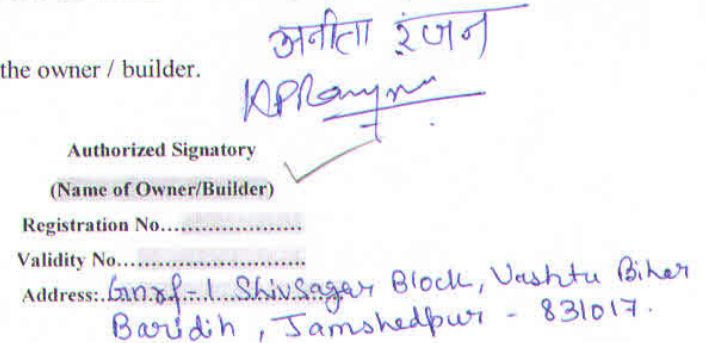 अनीता रंजन
the owner / builder.
Authorized Signatory
(Name of Owner/Builder)
Registration No.....................
Validity No............................
Address:. ShivSagar Block, Vashtu Bihar
Baridih, Jamshedpur - 831017.